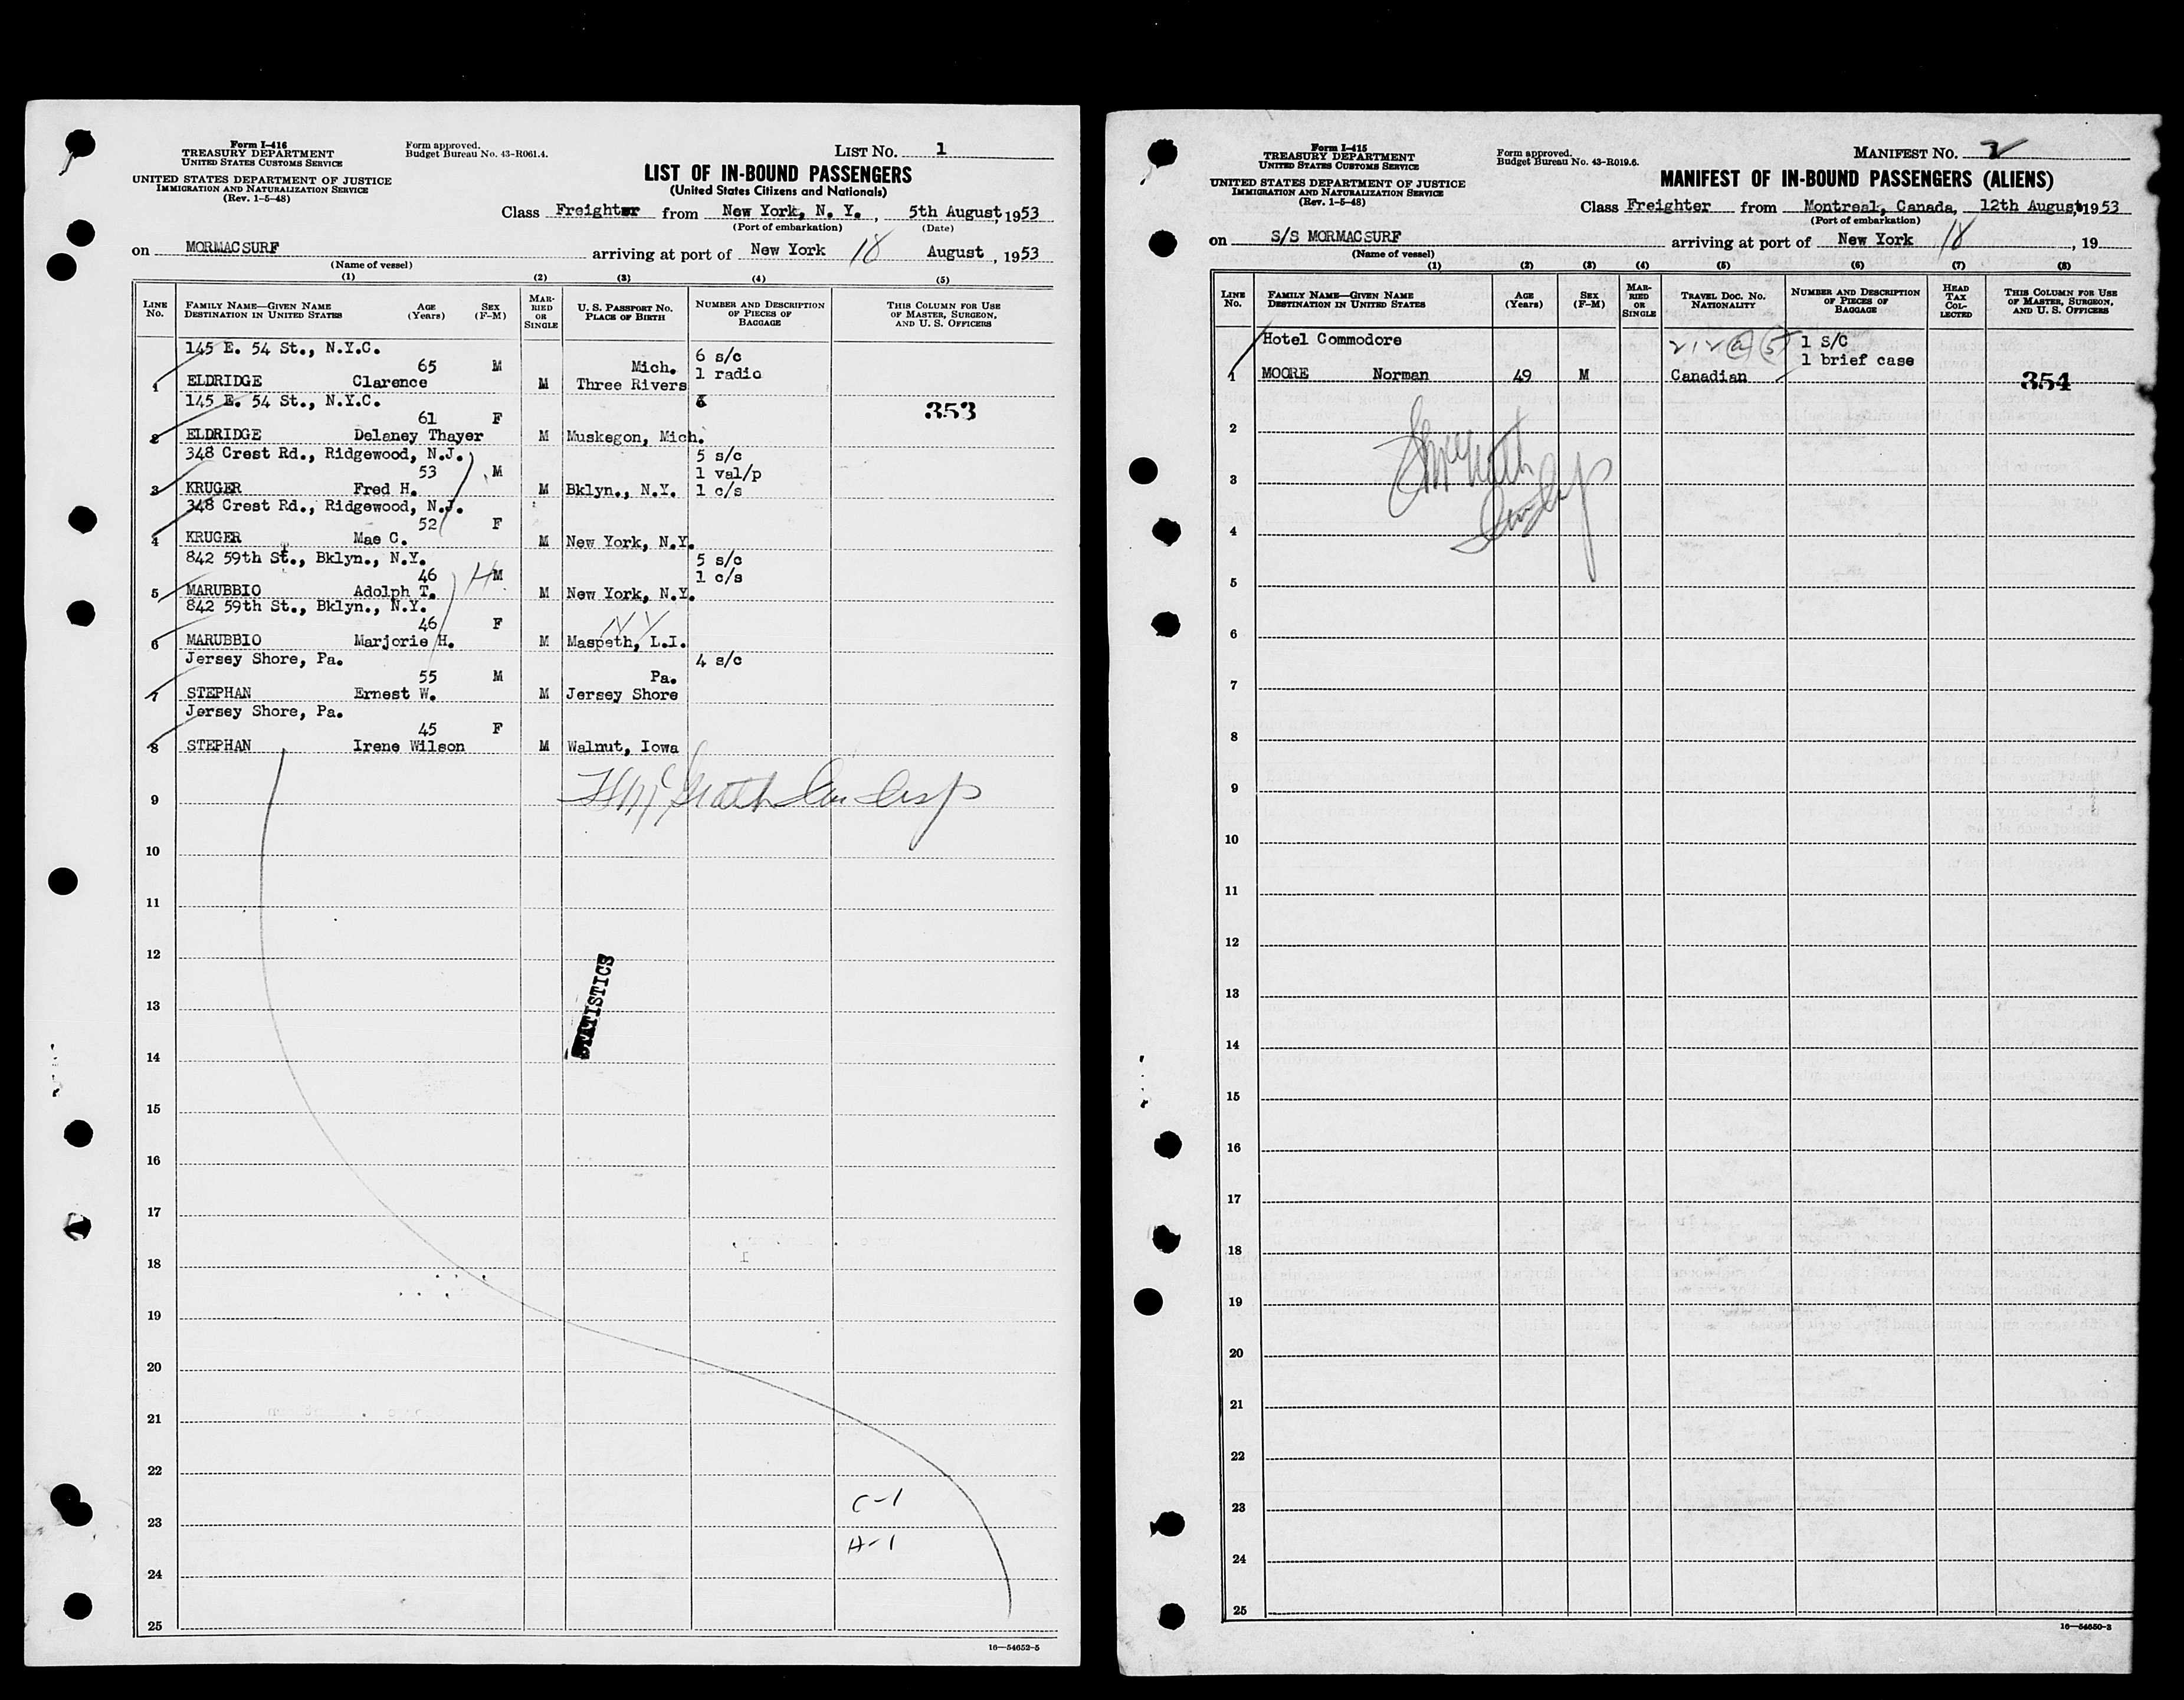 Form I-416
TREASURY DEPARTMENT
UNITED STATES CUSTOMS SERVICE
UNITED STATES DEPARTMENT OF JUSTICE
IMMIGRATION AND NATURALIZATION SERVICE
(Rev. 1-5-48)
Form approved.
Budget Bureau No. 43-R061.4.
LIST NO. 1
LIST OF IN-BOUND PASSENGERS
(United States Citizens and Nationals)
Class Freighter from New York, N. Y., 5th August, 1953
(Port of embarkation) (Date)
on MORMACSURF arriving at port of New York 18 August, 1953
(Name of vessel)
(1) (2) (3) (4) (5)
LINE No. FAMILY NAME—GIVEN NAME DESTINATION IN UNITED STATES AGE (Years) SEX (F-M) MARRIED OR SINGLE U. S. PASSPORT NO. PLACE OF BIRTH NUMBER AND DESCRIPTION OF PIECES OF BAGGAGE THIS COLUMN FOR USE OF MASTER, SURGEON, AND U. S. OFFICERS
145 E. 54 St., N.Y.C. 6 s/c
65 M Mich. 1 radio
1 ELDRIDGE Clarence M Three Rivers
145 E. 54 St., N.Y.C.
61 F 353
2 ELDRIDGE Delaney Thayer M Muskegon, Mich.
348 Crest Rd., Ridgewood, N.J. 5 s/c
53 M 1 val/p
3 KRUGER Fred H. M Bklyn., N.Y. 1 c/s
348 Crest Rd., Ridgewood, N.J.
52 F
4 KRUGER Mae C. M New York, N.Y.
842 59th St., Bklyn., N.Y. 5 s/c
46 H M 1 c/s
5 MARUBBIO Adolph T. M New York, N.Y.
842 59th St., Bklyn., N.Y.
46 F NY
6 MARUBBIO Marjorie H. M Maspeth, L.I.
Jersey Shore, Pa. 4 s/c
55 M Pa.
7 STEPHAN Ernest W. M Jersey Shore
Jersey Shore, Pa.
45 F
8 STEPHAN Irene Wilson M Walnut, Iowa
9
10
11
12
STATISTICS
13
14
15
16
17
18
19
20
21
22
C-1
23
H-1
24
25
16—54652-5
Form I-415
TREASURY DEPARTMENT
UNITED STATES CUSTOMS SERVICE
UNITED STATES DEPARTMENT OF JUSTICE
IMMIGRATION AND NATURALIZATION SERVICE
(Rev. 1-5-48)
Form approved.
Budget Bureau No. 43-R019.6.
MANIFEST NO. 2
MANIFEST OF IN-BOUND PASSENGERS (ALIENS)
Class Freighter from Montreal, Canada, 12th August, 1953
(Port of embarkation)
on S/S MORMACSURF arriving at port of New York 18, 19
(Name of vessel)
(1) (2) (3) (4) (5) (6) (7) (8)
LINE No. FAMILY NAME—GIVEN NAME DESTINATION IN UNITED STATES AGE (Years) SEX (F-M) MARRIED OR SINGLE TRAVEL DOC. NO. NATIONALITY NUMBER AND DESCRIPTION OF PIECES OF BAGGAGE HEAD TAX COLLECTED THIS COLUMN FOR USE OF MASTER, SURGEON, AND U. S. OFFICERS
Hotel Commodore 212 (a) (5) 1 S/C
1 brief case
1 MOORE Norman 49 M Canadian 354
2
3
4
5
6
7
8
9
10
11
12
13
14
15
16
17
18
19
20
21
22
23
24
25
16—54650-3